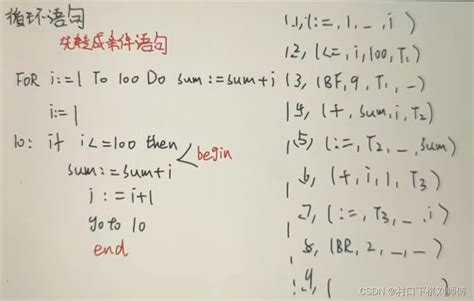 循环语句
先转成条件语句
FOR i:=1 To 100 Do sum:=sum+i
i:=1
10: if i<=100 then
begin
sum:=sum+i
j:=i+1
go to 10
end
1, (:=, 1, _, i)
2, (<=, i, 100, T1)
3, (BF, 9, T1, _)
4, (+, sum, i, T2)
5, (:=, T2, _, sum)
6, (+, i, 1, T3)
7, (:=, T3, _, i)
8, (BR, 2, _, _)
9, (
CSDN @村口下棋刘师傅